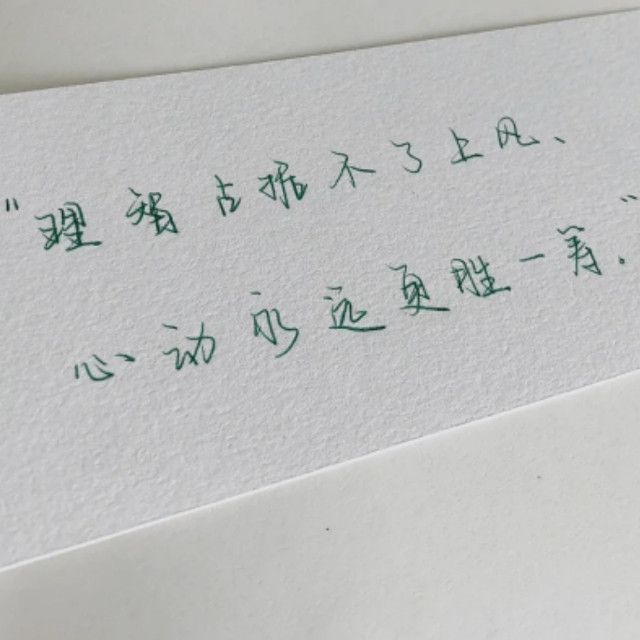 "理智占据不了上风、
心动的远更胜一筹."